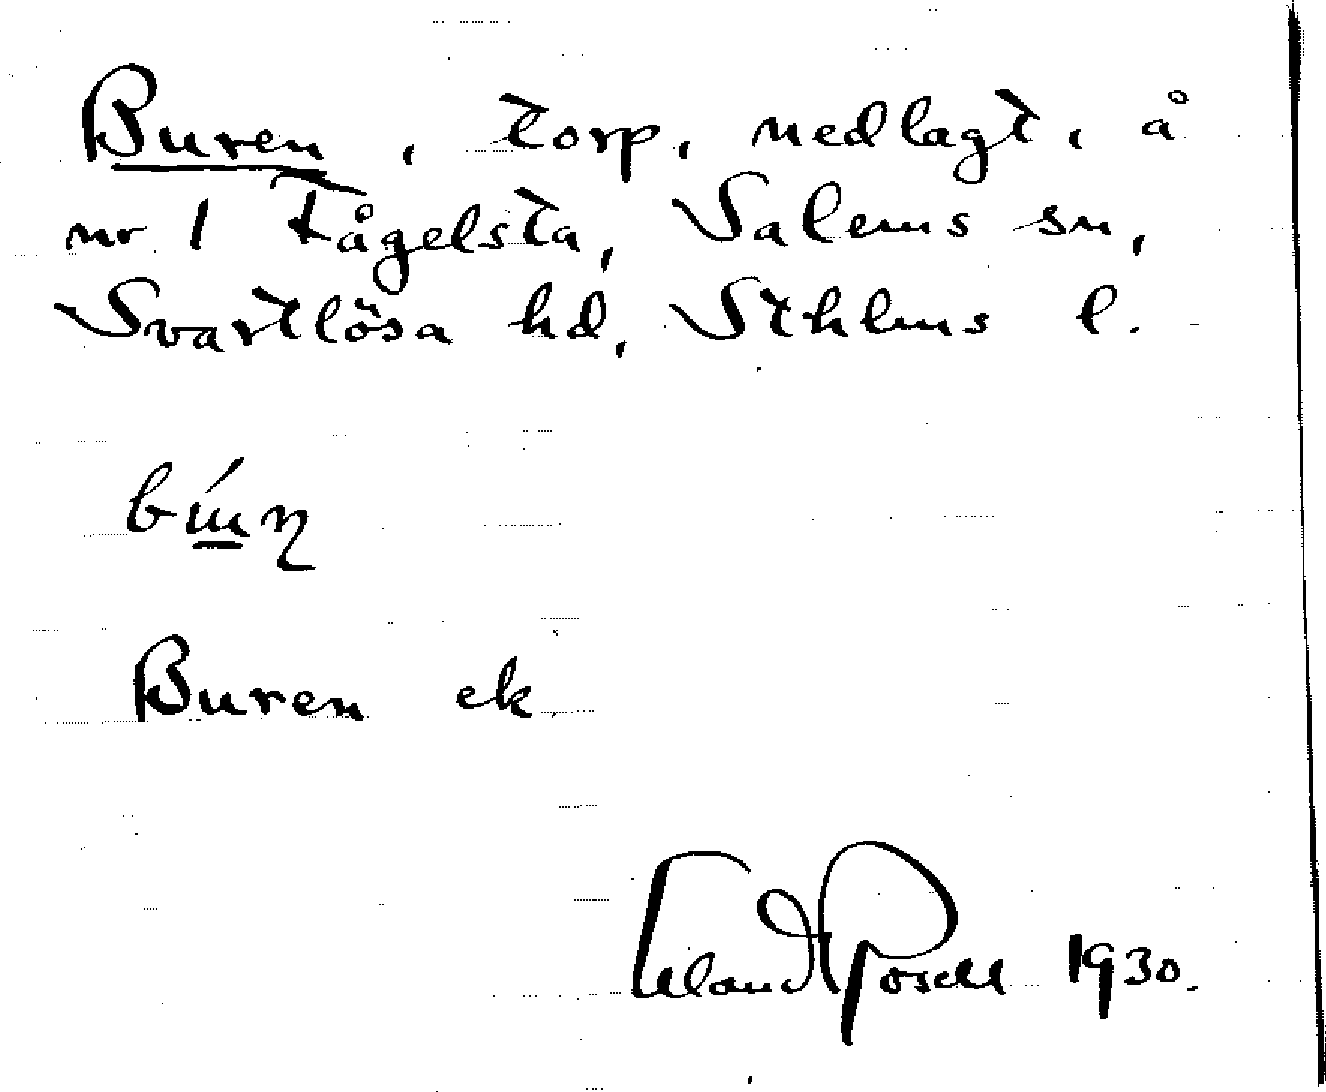 Buren, torp, nedlagt, å
nr 1 Fågelsta, Salems sn,
Svartlösa hd, Sthlms l.
Buren ek
Erland Rosell 1930.